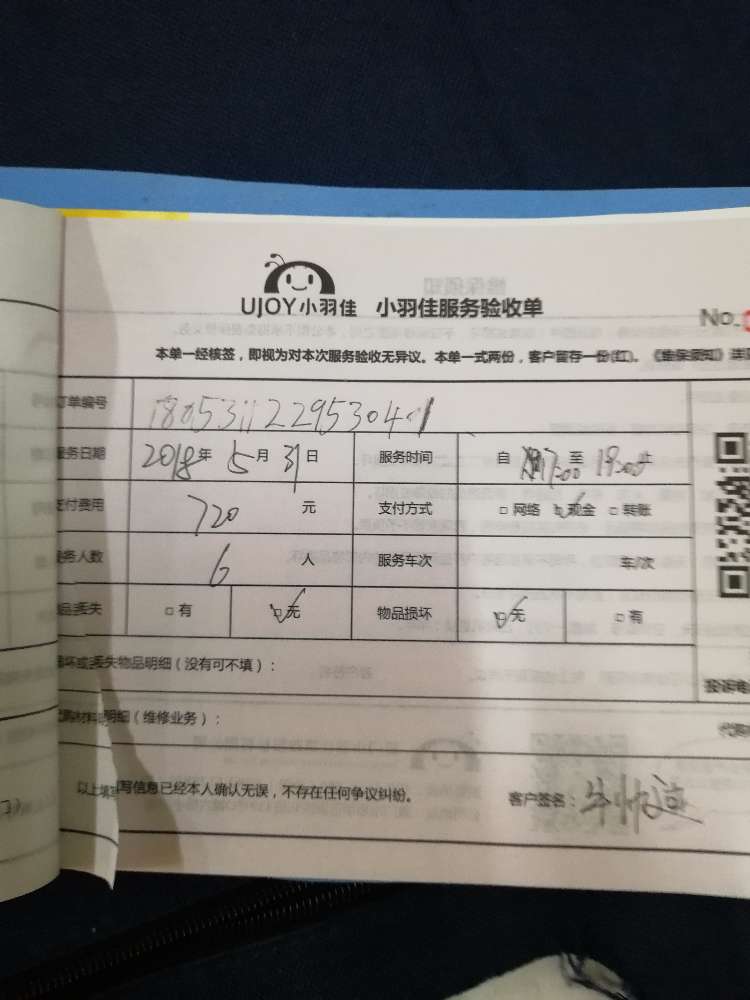 UJOY小羽佳 小羽佳服务验收单
No.
本单一经核签，即视为对本次服务验收无异议。本单一式两份，客户留存一份(红)。《维保须知》详
订单编号
服务日期 2018年 5月 31日 服务时间 自 17:00 至 19:00 止
支付费用 720 元 支付方式 □网络 ☑现金 □转账
服务人数 6 人 服务车次 车/次
物品丢失 □有 ☑无 物品损坏 ☑无 □有
损坏或丢失物品明细（没有可不填）：
投诉电
材料明细（维修业务）：
代购
以上填写信息已经本人确认无误，不存在任何争议纠纷。 客户签名：